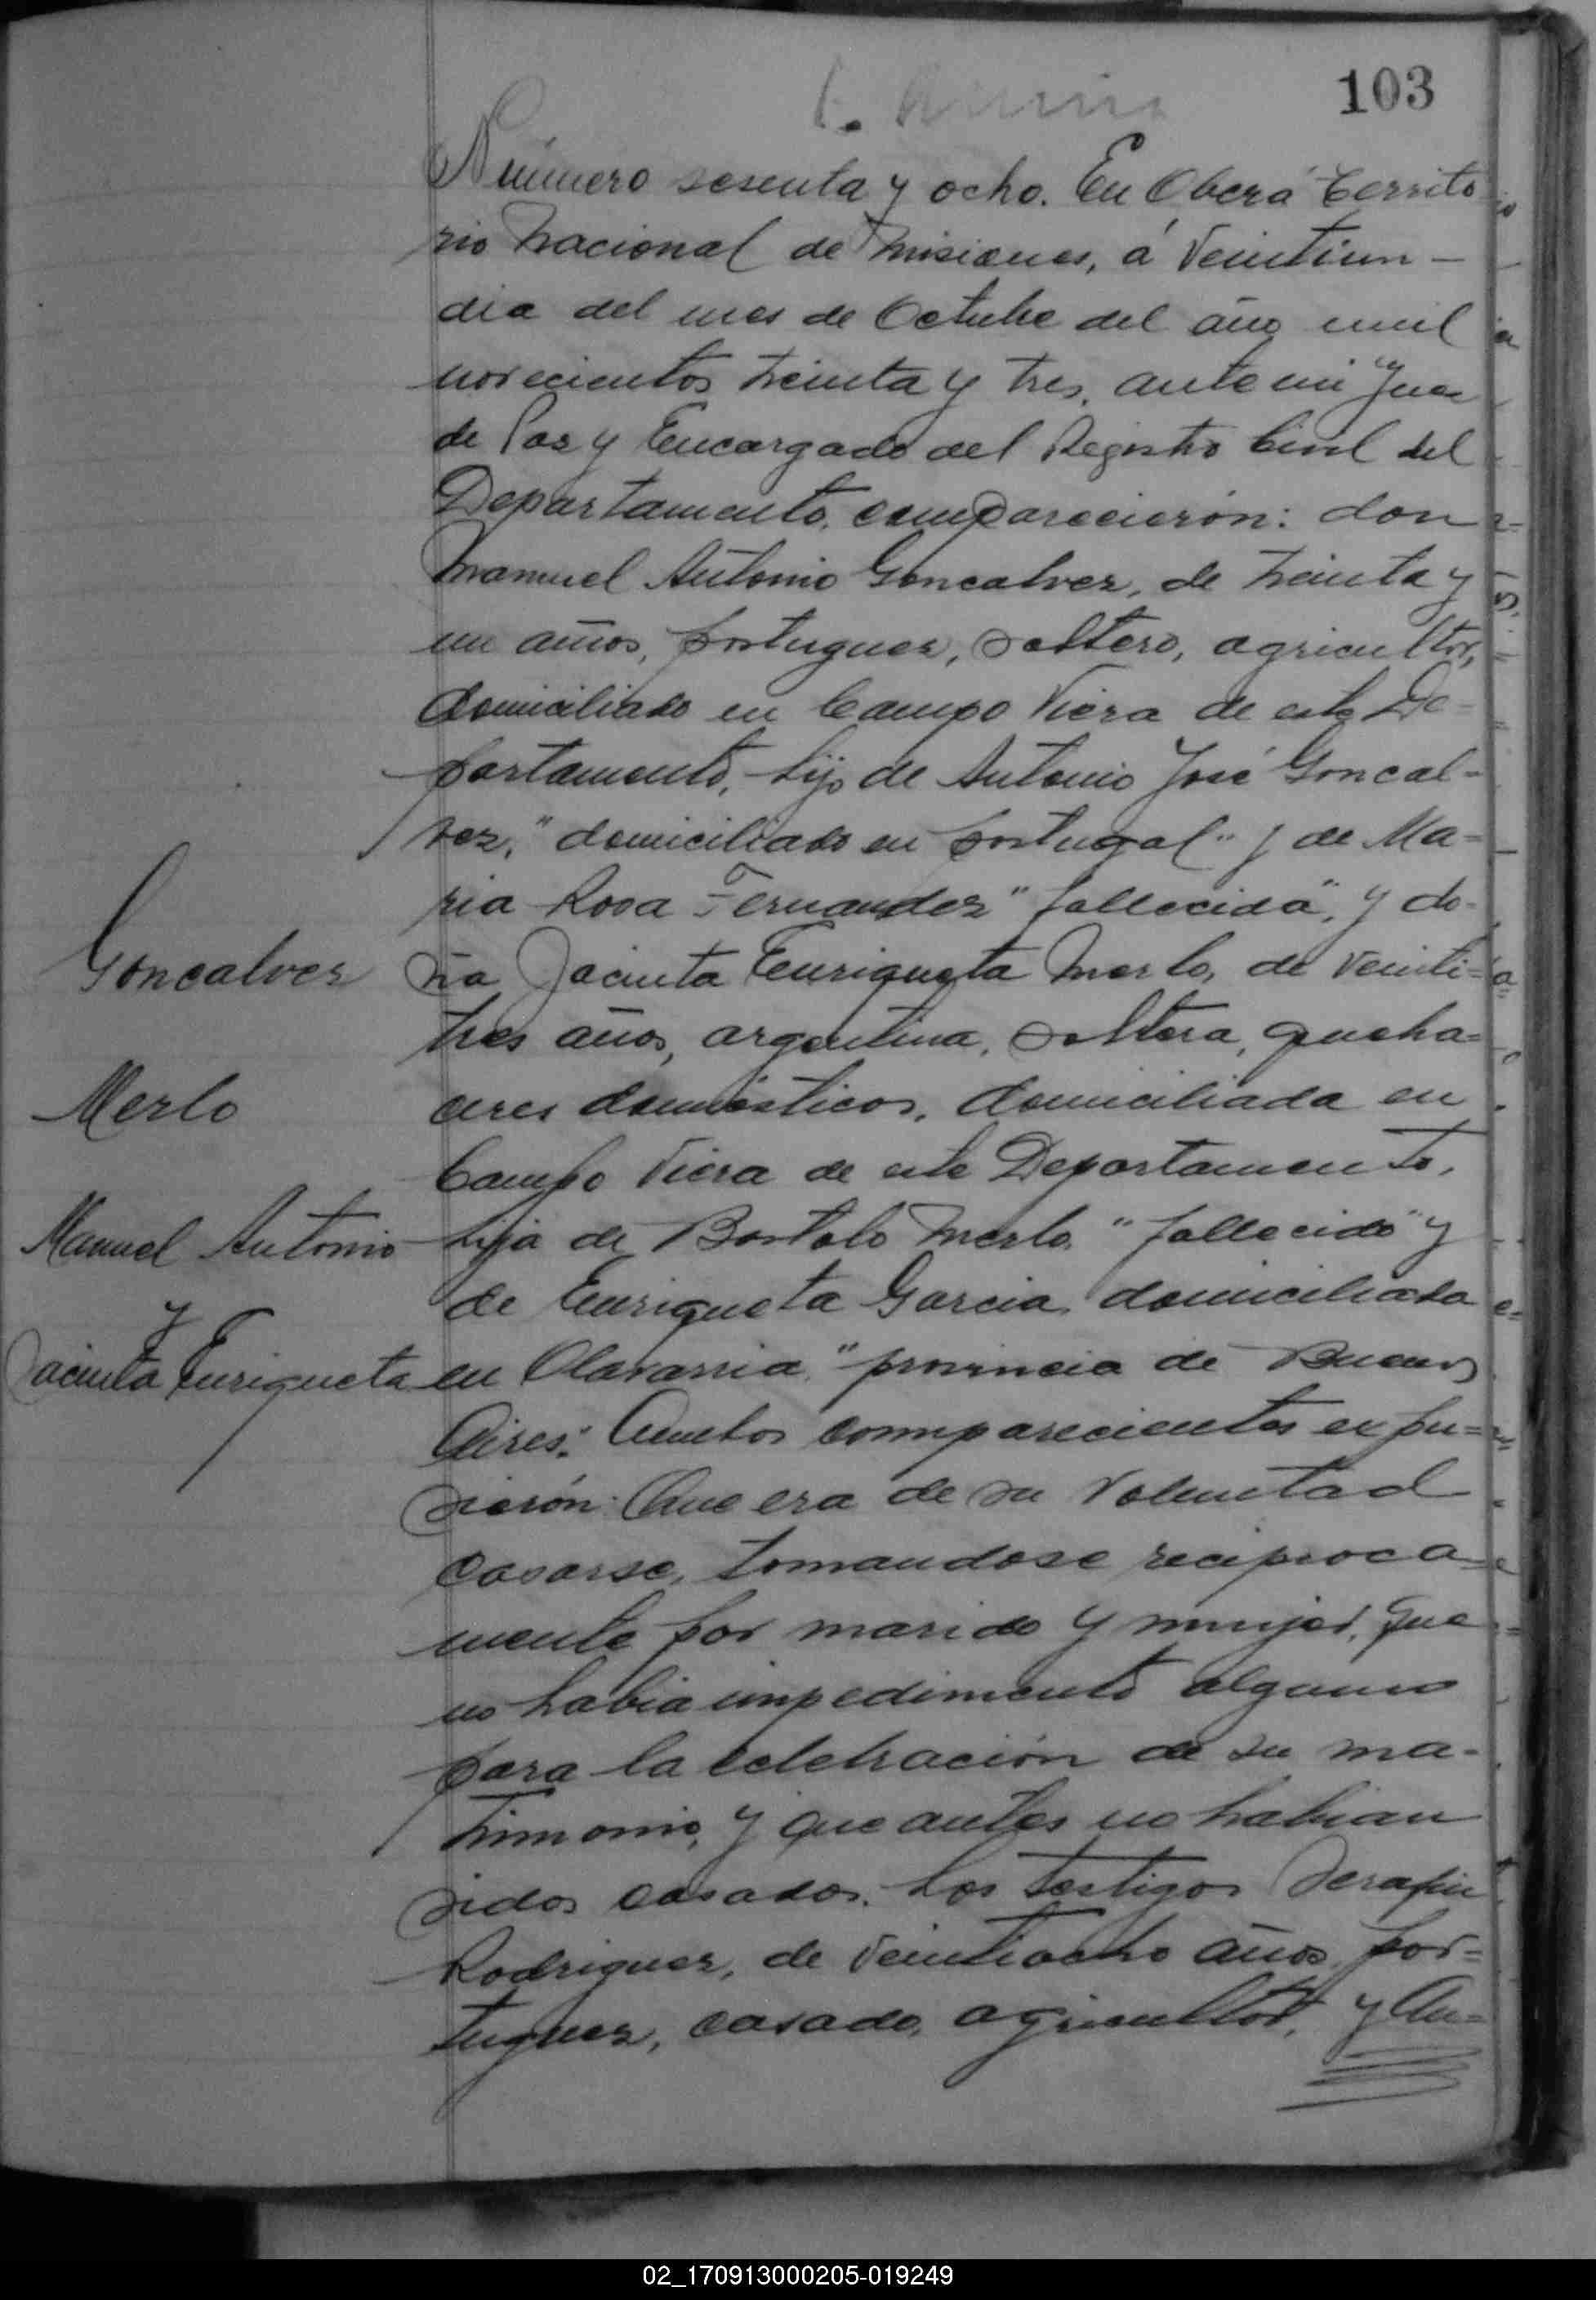 103
Número sesenta y ocho. En Oberá Territo
rio Nacional de Misiones, á Veintiun -
dia del mes de Octubre del año mil
novecientos treinta y tres, ante mi Juez
de Paz y Encargado del Registro Civil del
Departamento, comparecierón: don
Manuel Antonio Goncalvez, de treinta y
un años, portuguez, soltero, agricultor,
domiciliado en Campo Viera de este De-
partamento, hijo de Antonio José Goncal-
vez, "domiciliado en portugal" y de Ma-
ria Rosa Fernandez "fallecida", y do-
Goncalvez
ña Jacinta Enriqueta Merlo, de veinti-
tres años, argentina, soltera, queha-
Merlo
ceres domésticos, domiciliada en
Campo Viera de este Departamento,
Manuel Antonio
hija de Bartolo Merlo, "fallecido" y
y
de Enriqueta Garcia, domiciliada
Jacinta Enriqueta
en Olavarria, "provincia de Buenos
Aires": Ambos comparecientes expu-
sierón: Que era de su voluntad
casarse, tomandose reciproca-
mente por marido y mujer, que
no habia impedimento alguno
para la celebración de su ma-
trimonio, y que antes no habian
sidos casados. Los testigos Serafin
Rodriguez, de veintiocho años, por-
tuguez, casado, agricultor, y An-
02_170913000205-019249